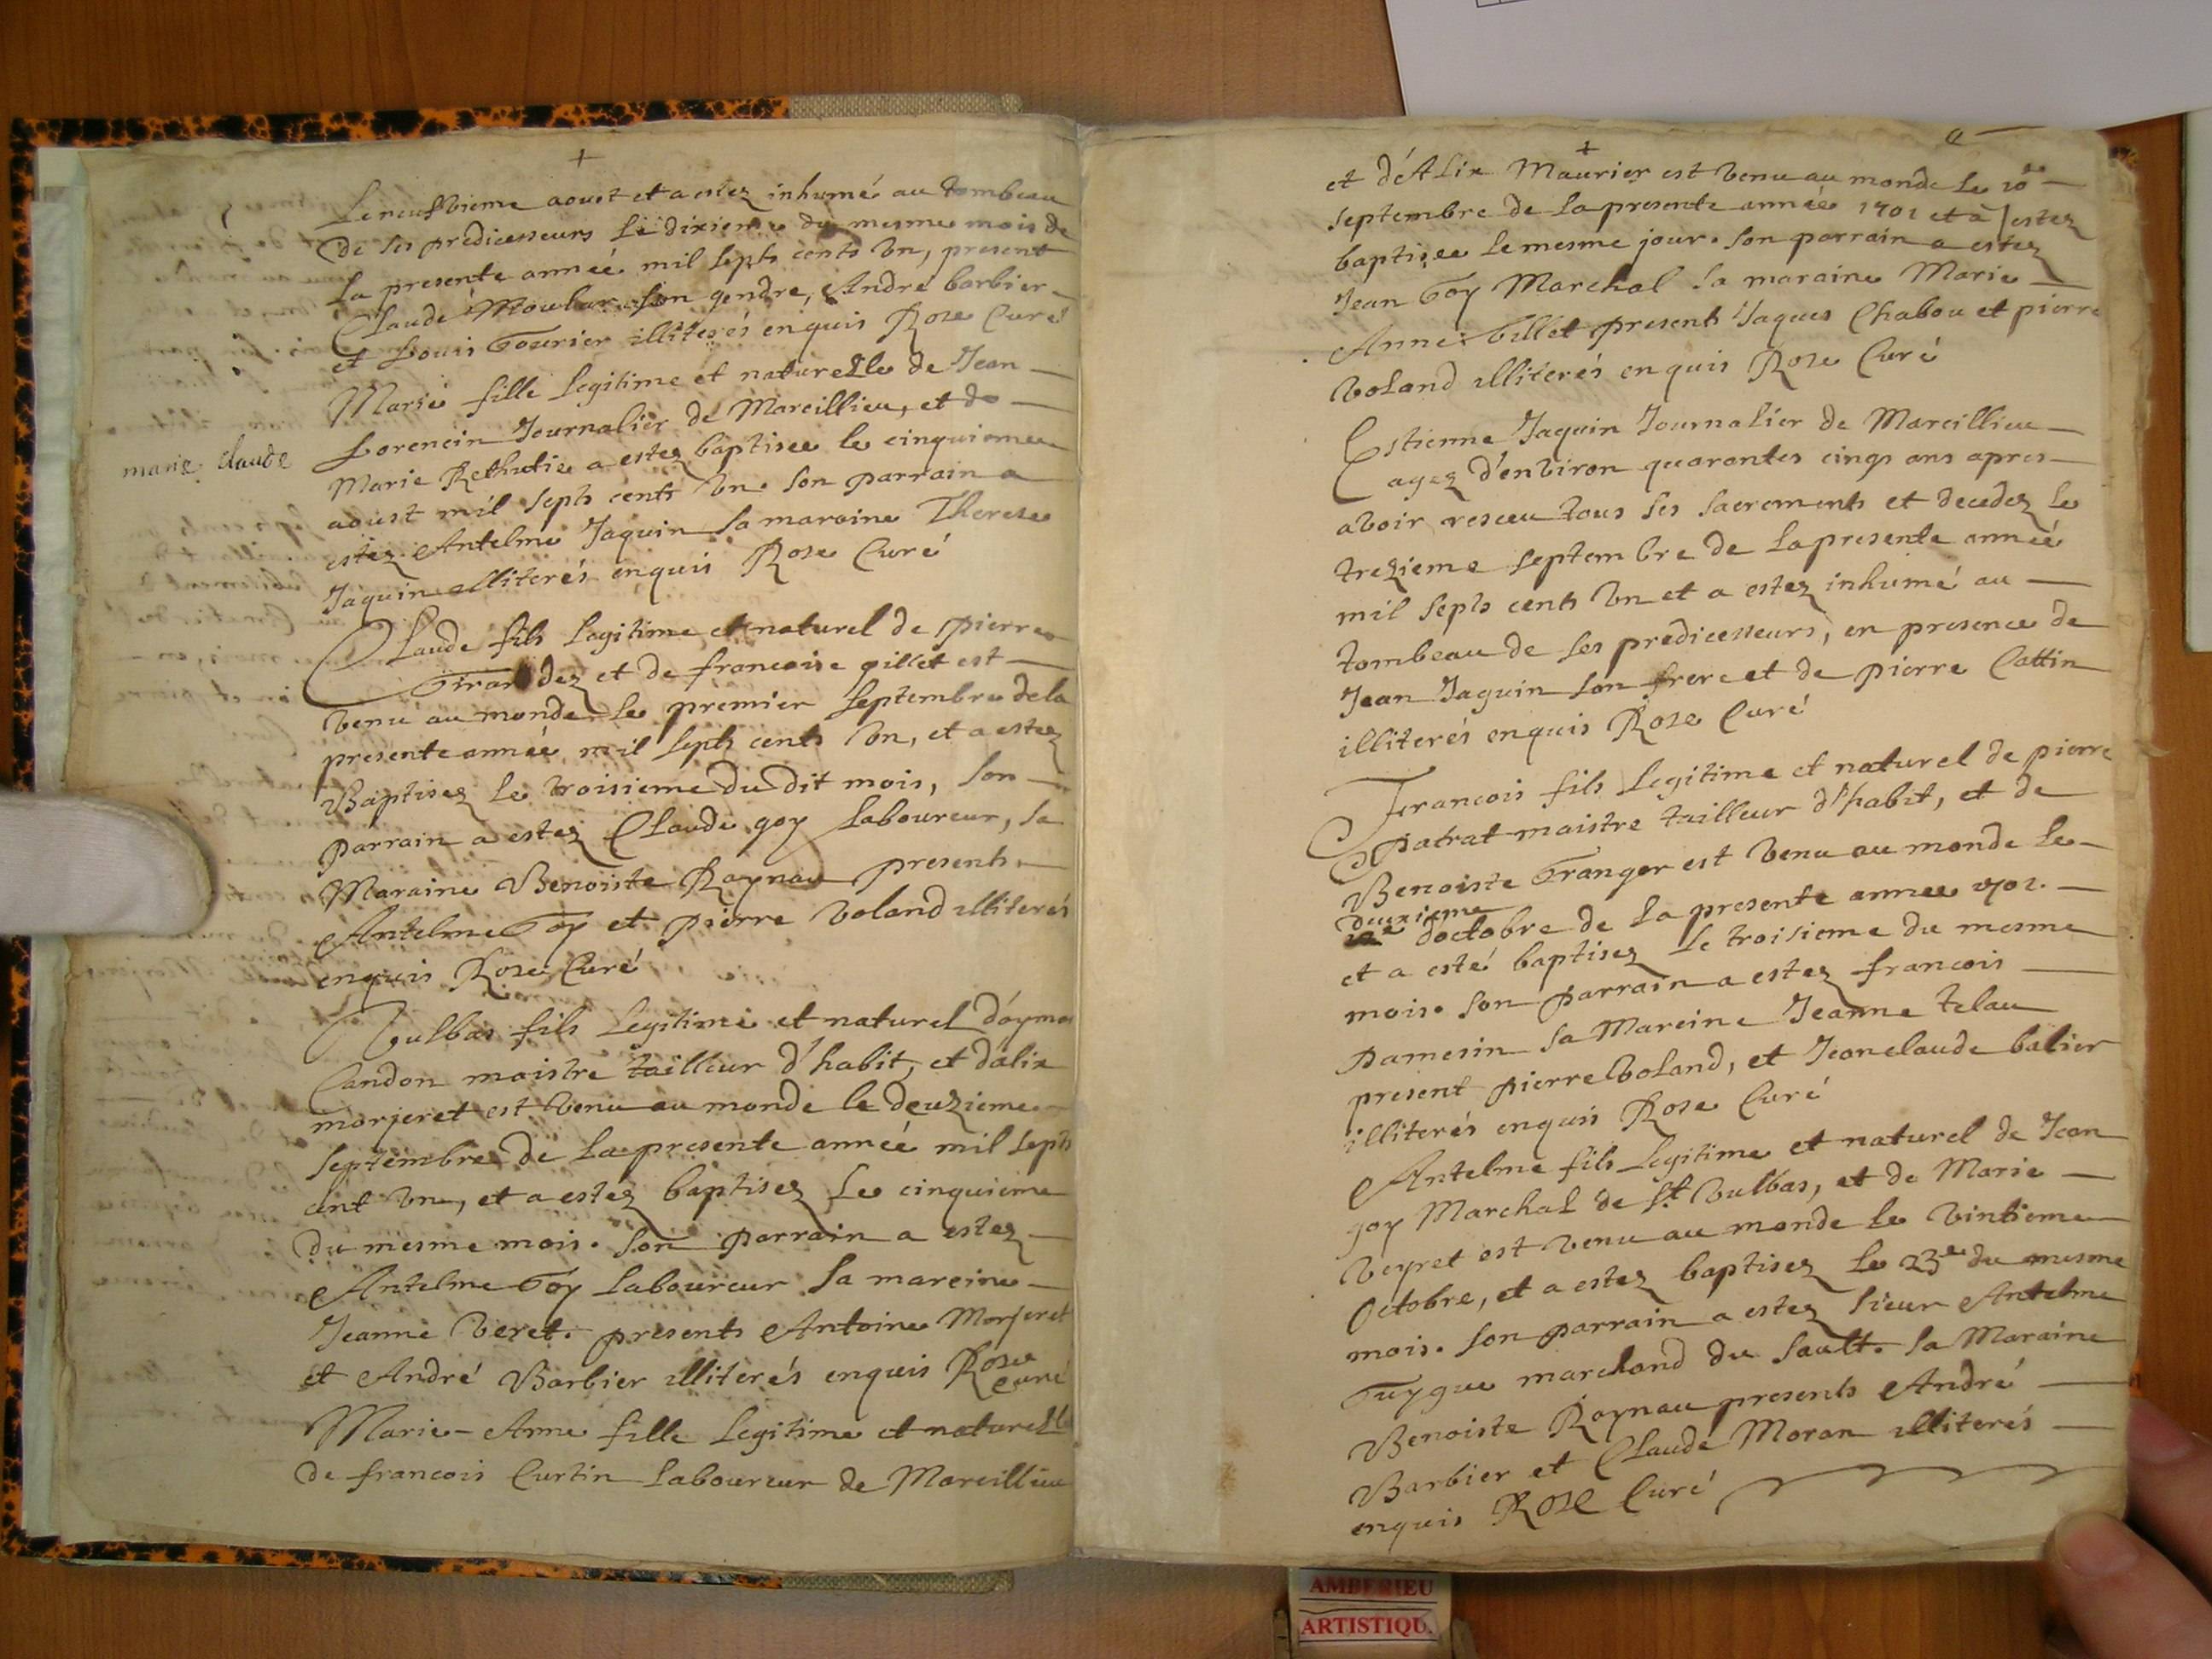 +
Le neufvieme aoust et a estez inhumé au tombeau
de ses predicesseurs le dixieme du mesme mois de
la presente année mil septs cents un, present
Claude son gendre, André barbier
et Louis Gourier illiterés enquis Rose Curé
Marie fille legitime et naturelle de Jean
Lorencin Journalier de Marcillieu, et de
marie claude
Marie a estez baptisee le cinquieme
aoust mil septs cents un. son parrain a
estez Antelme Jaquin sa maraine Therese
Jaquin illiterés enquis Rose Curé
Claude fils legitime et naturel de pierre
et de francoise gillet est
venu au monde le premier septembre de la
presente année mil septs cents un, et a estez
Baptisez le troisieme du dit mois, son
parrain a estez Claude goy laboureur, sa
Maraine Benoiste Raynau presents
Antelme Goy et pierre voland illiterés
enquis Rose Curé
Vulbas fils legitime et naturel d'aymo
Candon maistre tailleur d'habit, et dalix
morjeret est venu au monde le deuzieme
septembre de la presente année mil septs
cent un, et a estez baptisez le cinquieme
du mesme mois. son parrain a estez
Antelme Goy laboureur sa mareine
Jeanne Veret. presents Antoine Morjeret
et André Barbier illiterés enquis Rose
curé
Marie-Anne fille legitime et naturelle
de francois Curtin laboureur de Marcillieu
+
et d'Alix Maurier est venu au monde le
septembre de la presente année 1701 et a estez
baptisee le mesme jour. son parrain a estez
Jean Goy Marchal sa maraine Marie
Anne gillet presents Jaques Chabou et pierre
voland illiterés enquis Rose Curé
Estienne Jaquin Journalier de Marcillieu
agez d'environ quarantes cinqs ans apres
avoir resceu tous ses sacrements et decedez le
trezieme septembre de la presente année
mil septs cents un et a estez inhumé au
tombeau de ses predicesseurs, en presence de
Jean Jaquin son frere et de pierre Cattin
illiterés enquis Rose Curé
Francois fils legitime et naturel de pierre
patrat maistre tailleur d'habit, et de
Benoiste Granger est venu au monde le
deuxieme
doctobre de la presente annee 1701.
et a esté baptisez le troisieme du mesme
mois. son parrain a estez francois
Damesin sa Mareine Jeanne telau
present pierre voland, et Jeanclaude balier
illiterés enquis Rose Curé
Antelme fils legitime et naturel de Jean
goy Marchal de St Vulbas, et de Marie
veyret est venu au monde le vintieme
Octobre, et a estez baptisez le 23e du mesme
mois. son parrain a estez sieur Antelme
Guygue marchand du sault. sa Maraine
Benoiste Raynau presents André
Barbier et Claude Moran illiterés
enquis ROSE Curé
AMBERIEU
ARTISTIQU